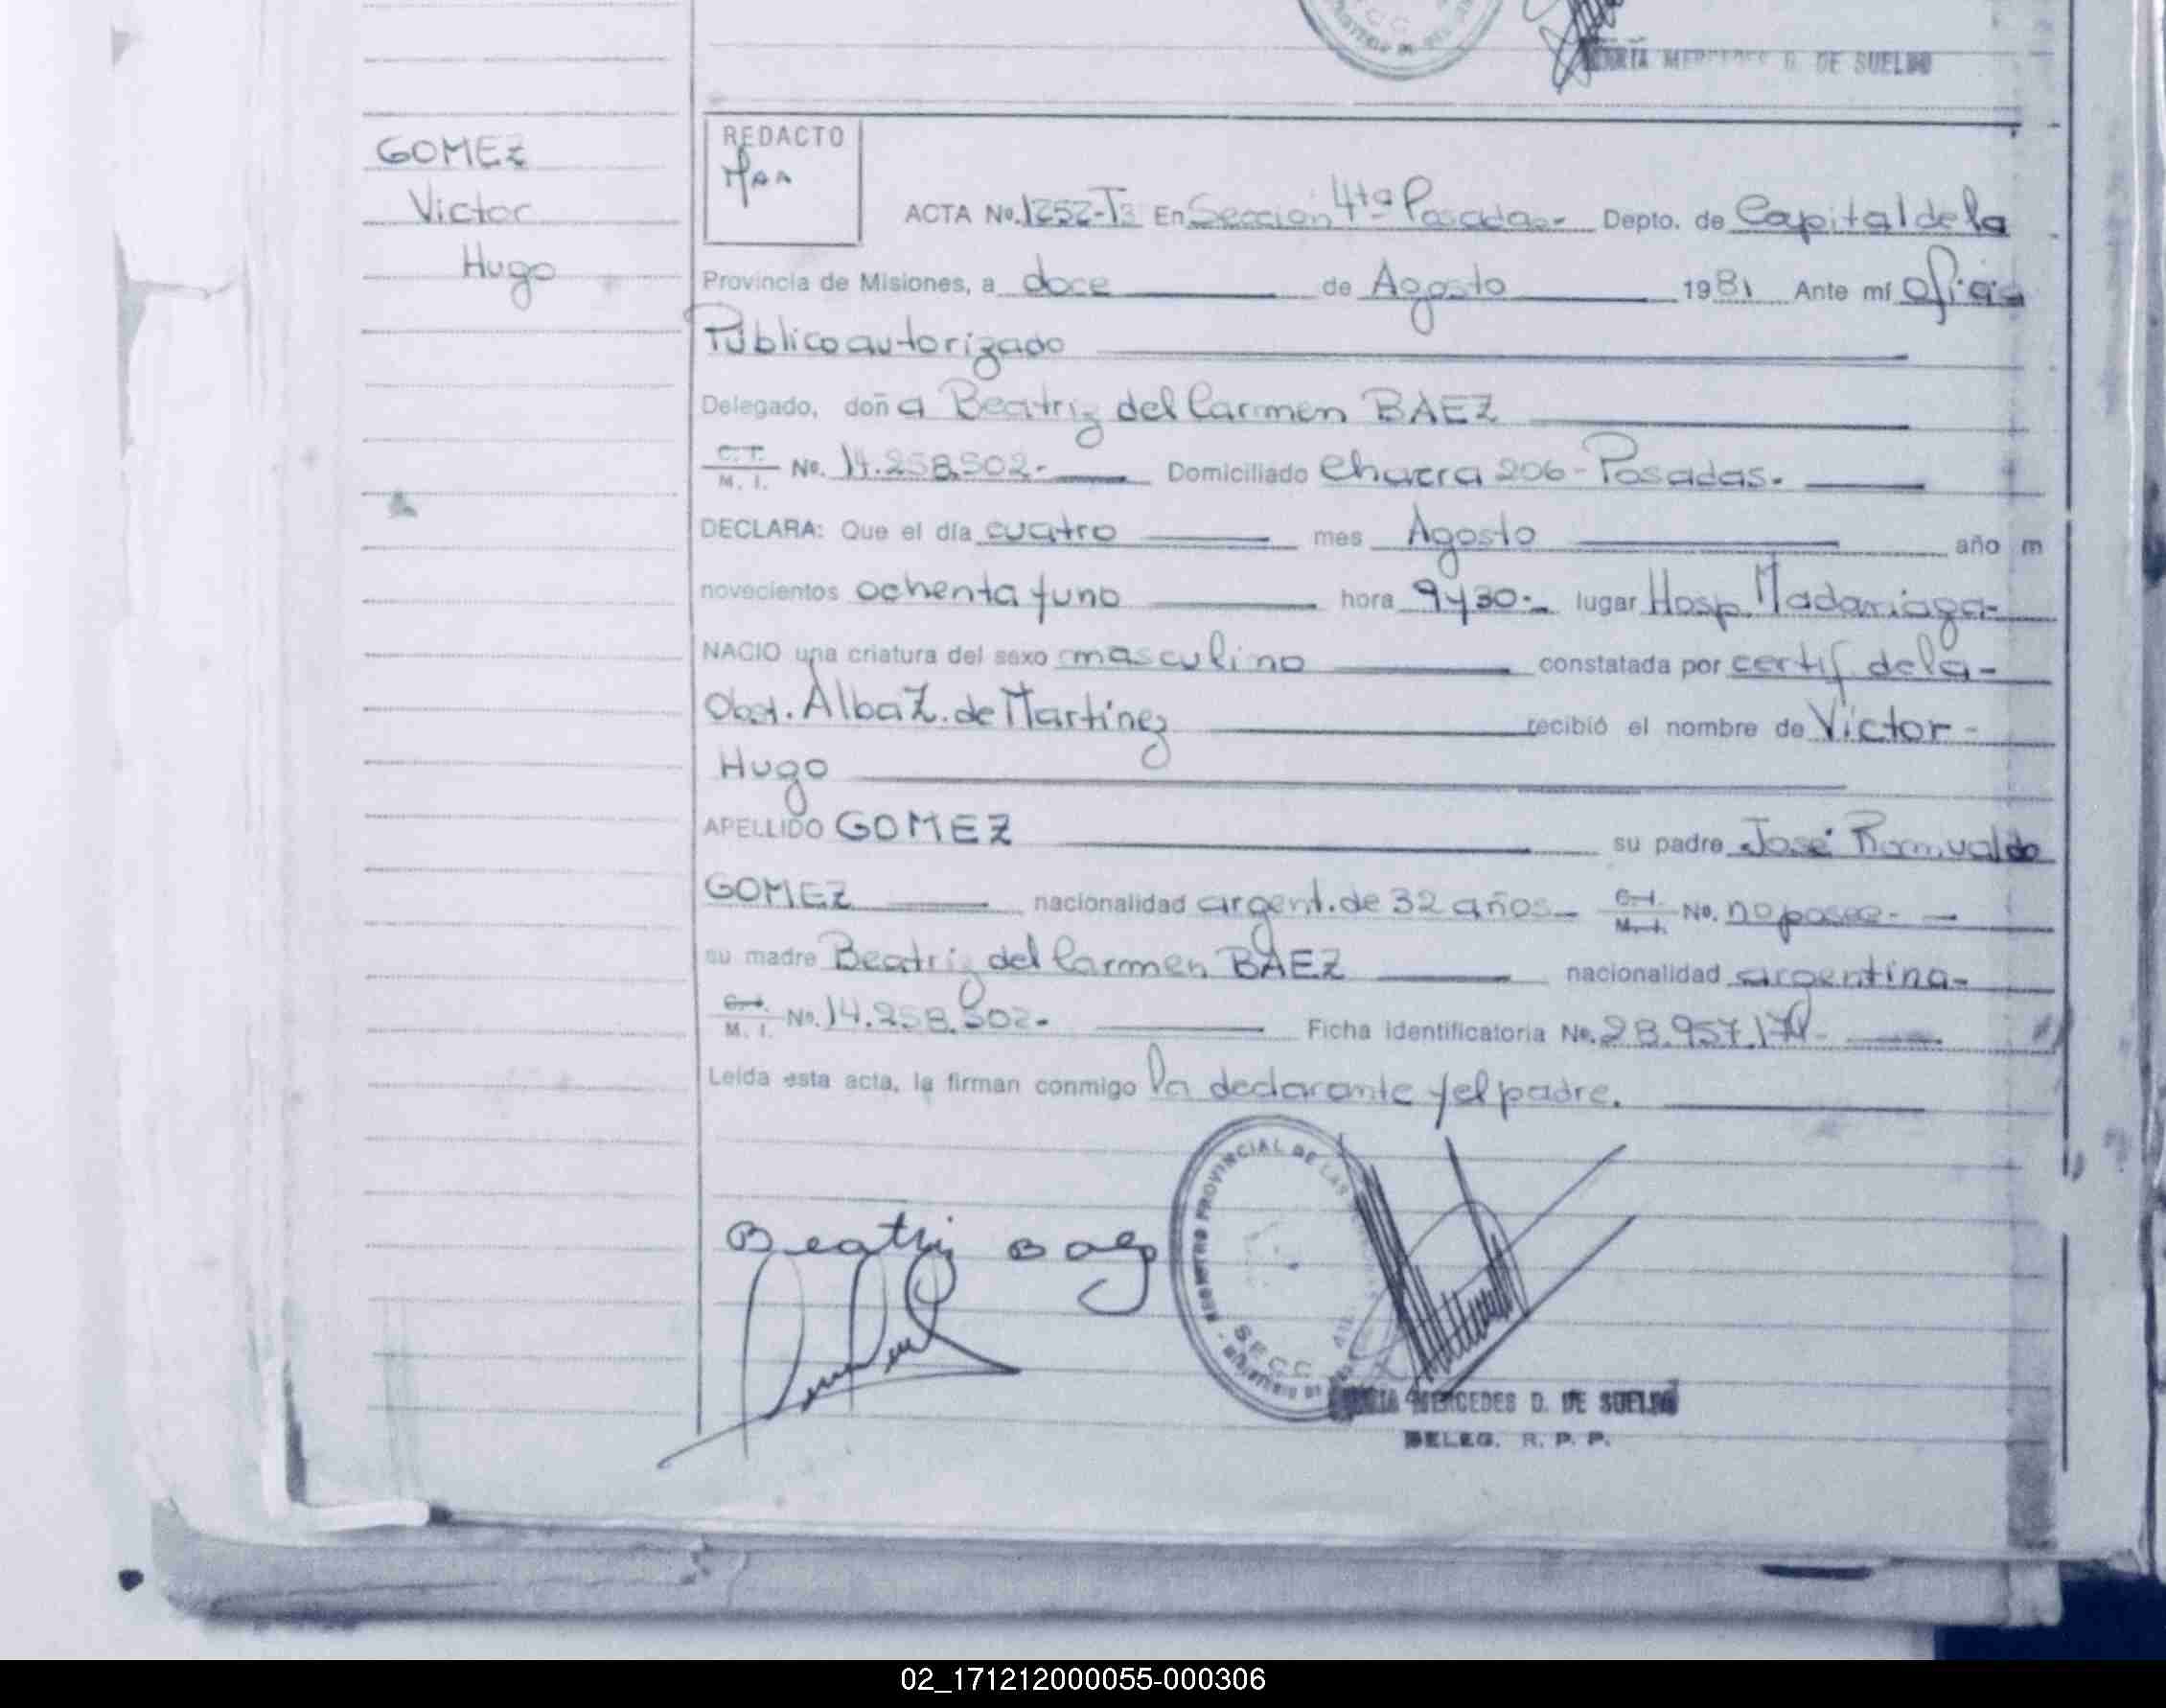 MERCEDES D. DE SUELDO
GOMEZ
Victor
Hugo
REDACTO
ACTA No. 1252-T3 En Seccion 4ta Posadas- Depto. de Capital de la
Provincia de Misiones, a doce de Agosto 1981 Ante mí
Público autorizado
Delegado, doña Beatriz del Carmen BAEZ
C. I.
M. I. No. 14.258.502- Domiciliado Chacra 206 - Posadas.
DECLARA: Que el día cuatro mes Agosto año m
novecientos ochenta y uno hora 9 y 30- lugar Hosp. Madariaga-
NACIO una criatura del sexo masculino constatada por certif. de la-
Obst. Alba Z. de Martínez recibió el nombre de Víctor-
Hugo
APELLIDO GOMEZ su padre José Romualdo
GOMEZ nacionalidad argent. de 32 años- C. I.
M. I. No. no posee-
su madre Beatriz del Carmen BAEZ nacionalidad argentina-
C. I.
M. I. No. 14.258.502- Ficha identificatoria No. 28.957.
Leída esta acta, la firman conmigo la declarante y el padre.
Beatriz Baez
REGISTRO PROVINCIAL DE LAS
SECC
MERCEDES D. DE SUELDO
DELEG. R. P. P.
02_171212000055-000306